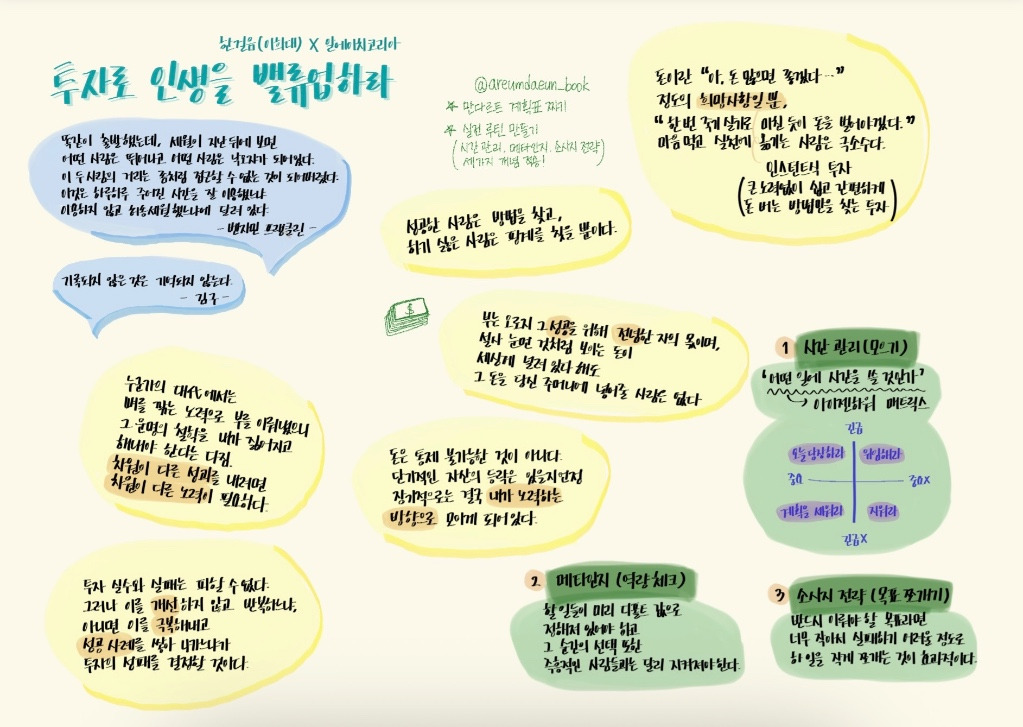 한걸음(이희대) X 알에이치코리아
투자로 인생을 밸류업하라
@areumdaeun_book
* 만다르트 계획표 짜기
* 실전 루틴 만들기
(시간 관리, 메타인지, 소시지 전략)
세가지 개념 적용!
똑같이 출발했는데, 세월이 지난 뒤에 보면
어떤 사람은 뛰어나고 어떤 사람은 낙오자가 되어있다.
이 두사람의 거리는 좀처럼 접근할 수 없는 것이 되어버렸다.
이것은 하루하루 주어진 시간을 잘 이용했느냐
이용하지 않고 허송세월했느냐에 달려 있다.
- 벤자민 프랭클린 -
기록되지 않은 것은 기억되지 않는다.
- 김구 -
돈이란 "아, 돈 많으면 좋겠다…"
정도의 희망사항일 뿐,
"한 번 죽기 살기로 미친 듯이 돈을 벌어야겠다."
마음먹고 실천에 옮기는 사람은 극소수다.
인스턴트식 투자
(큰 노력없이 쉽고 간편하게
돈 버는 방법만을 찾는 투자)
성공한 사람은 방법을 찾고,
하기 싫은 사람은 핑계를 찾을 뿐이다.
$
부는 오로지 그 성공을 위해 전념한 자의 몫이며,
설사 눈먼 것처럼 보이는 돈이
세상에 널려 있다 해도
그 돈을 당신 주머니에 넣어줄 사람은 없다
누군가의 대代에서는
뼈를 깎는 노력으로 부를 이뤄냈으니
그 운명의 철학을 내가 짊어지고
해내야 한다는 다짐.
차원이 다른 성과를 내려면
차원이 다른 노력이 필요하다.
돈은 통제 불가능한 것이 아니다.
단기적인 자산의 등락은 있을지언정
장기적으로는 결국 내가 노력하는
방향으로 모이게 되어있다.
투자 실수와 실패는 피할 수 없다.
그러나 이를 개선하지 않고 반복하느냐,
아니면 이를 극복해내고
성공 사례를 쌓아 나가느냐가
투자의 성패를 결정할 것이다.
1 시간 관리 (모으기)
'어떤 일에 시간을 쓸 것인가'
아이젠하워 매트릭스
긴급
오늘당장하라
위임하라
중요
중요X
계획을 세워라
지워라
긴급X
2. 메타인지 (역량 체크)
할 일들이 미리 디폴트 값으로
정해져 있어야 하고
그 순간의 선택 또한
즉흥적인 사람들과는 달리 지켜져야 한다.
3 소시지 전략 (목표 쪼개기)
반드시 이뤄야 할 목표라면
너무 작아서 실패하기 어려울 정도로
할 일을 작게 쪼개는 것이 효과적이다.